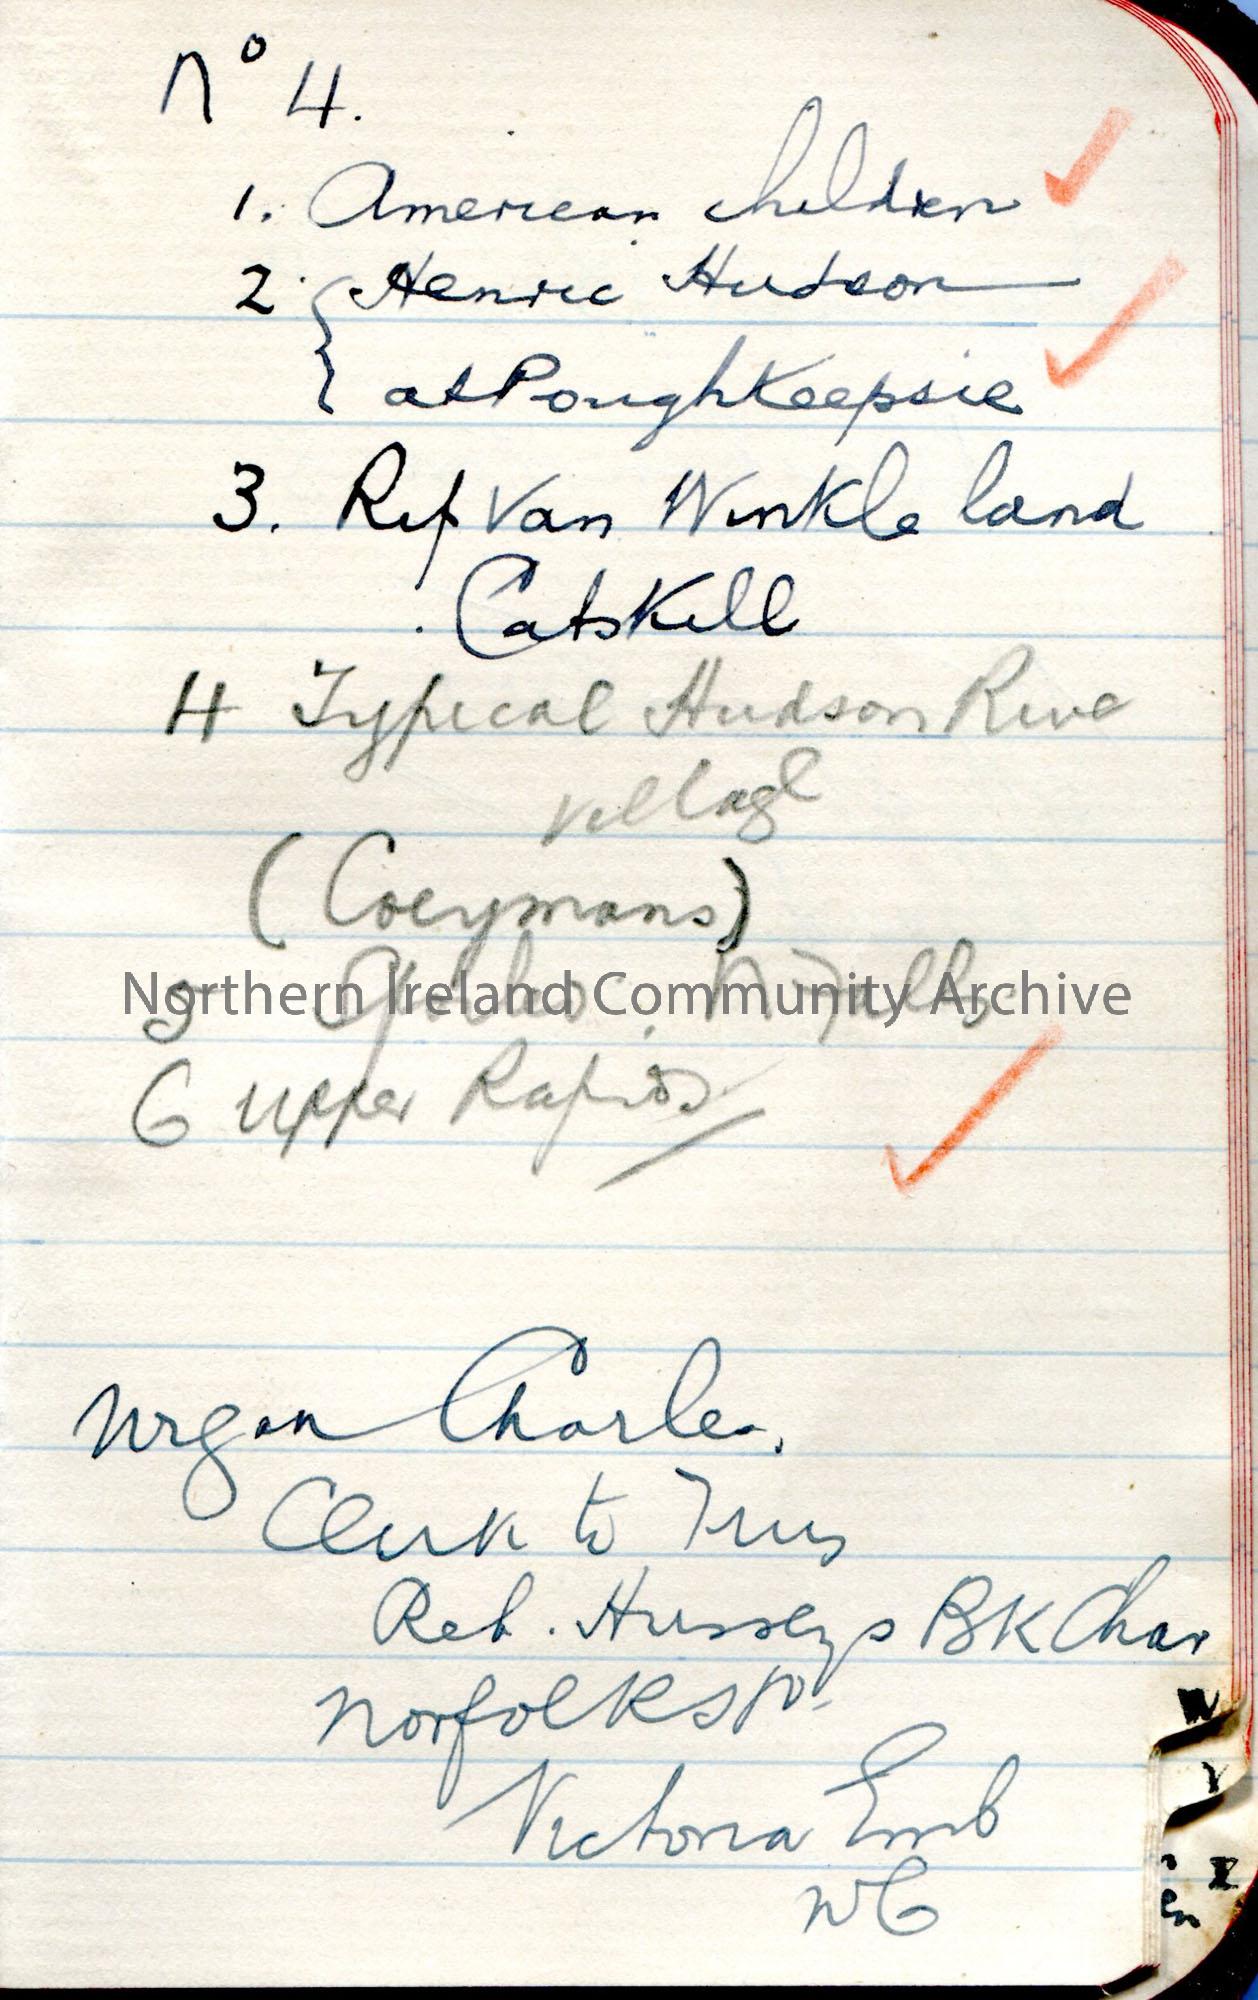 No 4.
1. American children
2. Henric Hudson
at Poughkeepsie
3. Rip Van Winkle land
Catskill
4 Typical Hudson Rive
village
(Coeymans)
5 N. Falls
Northern Ireland Community Archive
6 upper Rapids
Charles.
Clerk to Trus
Reb. Husseys BK Char
Norfolk St
Victoria Emb
WC